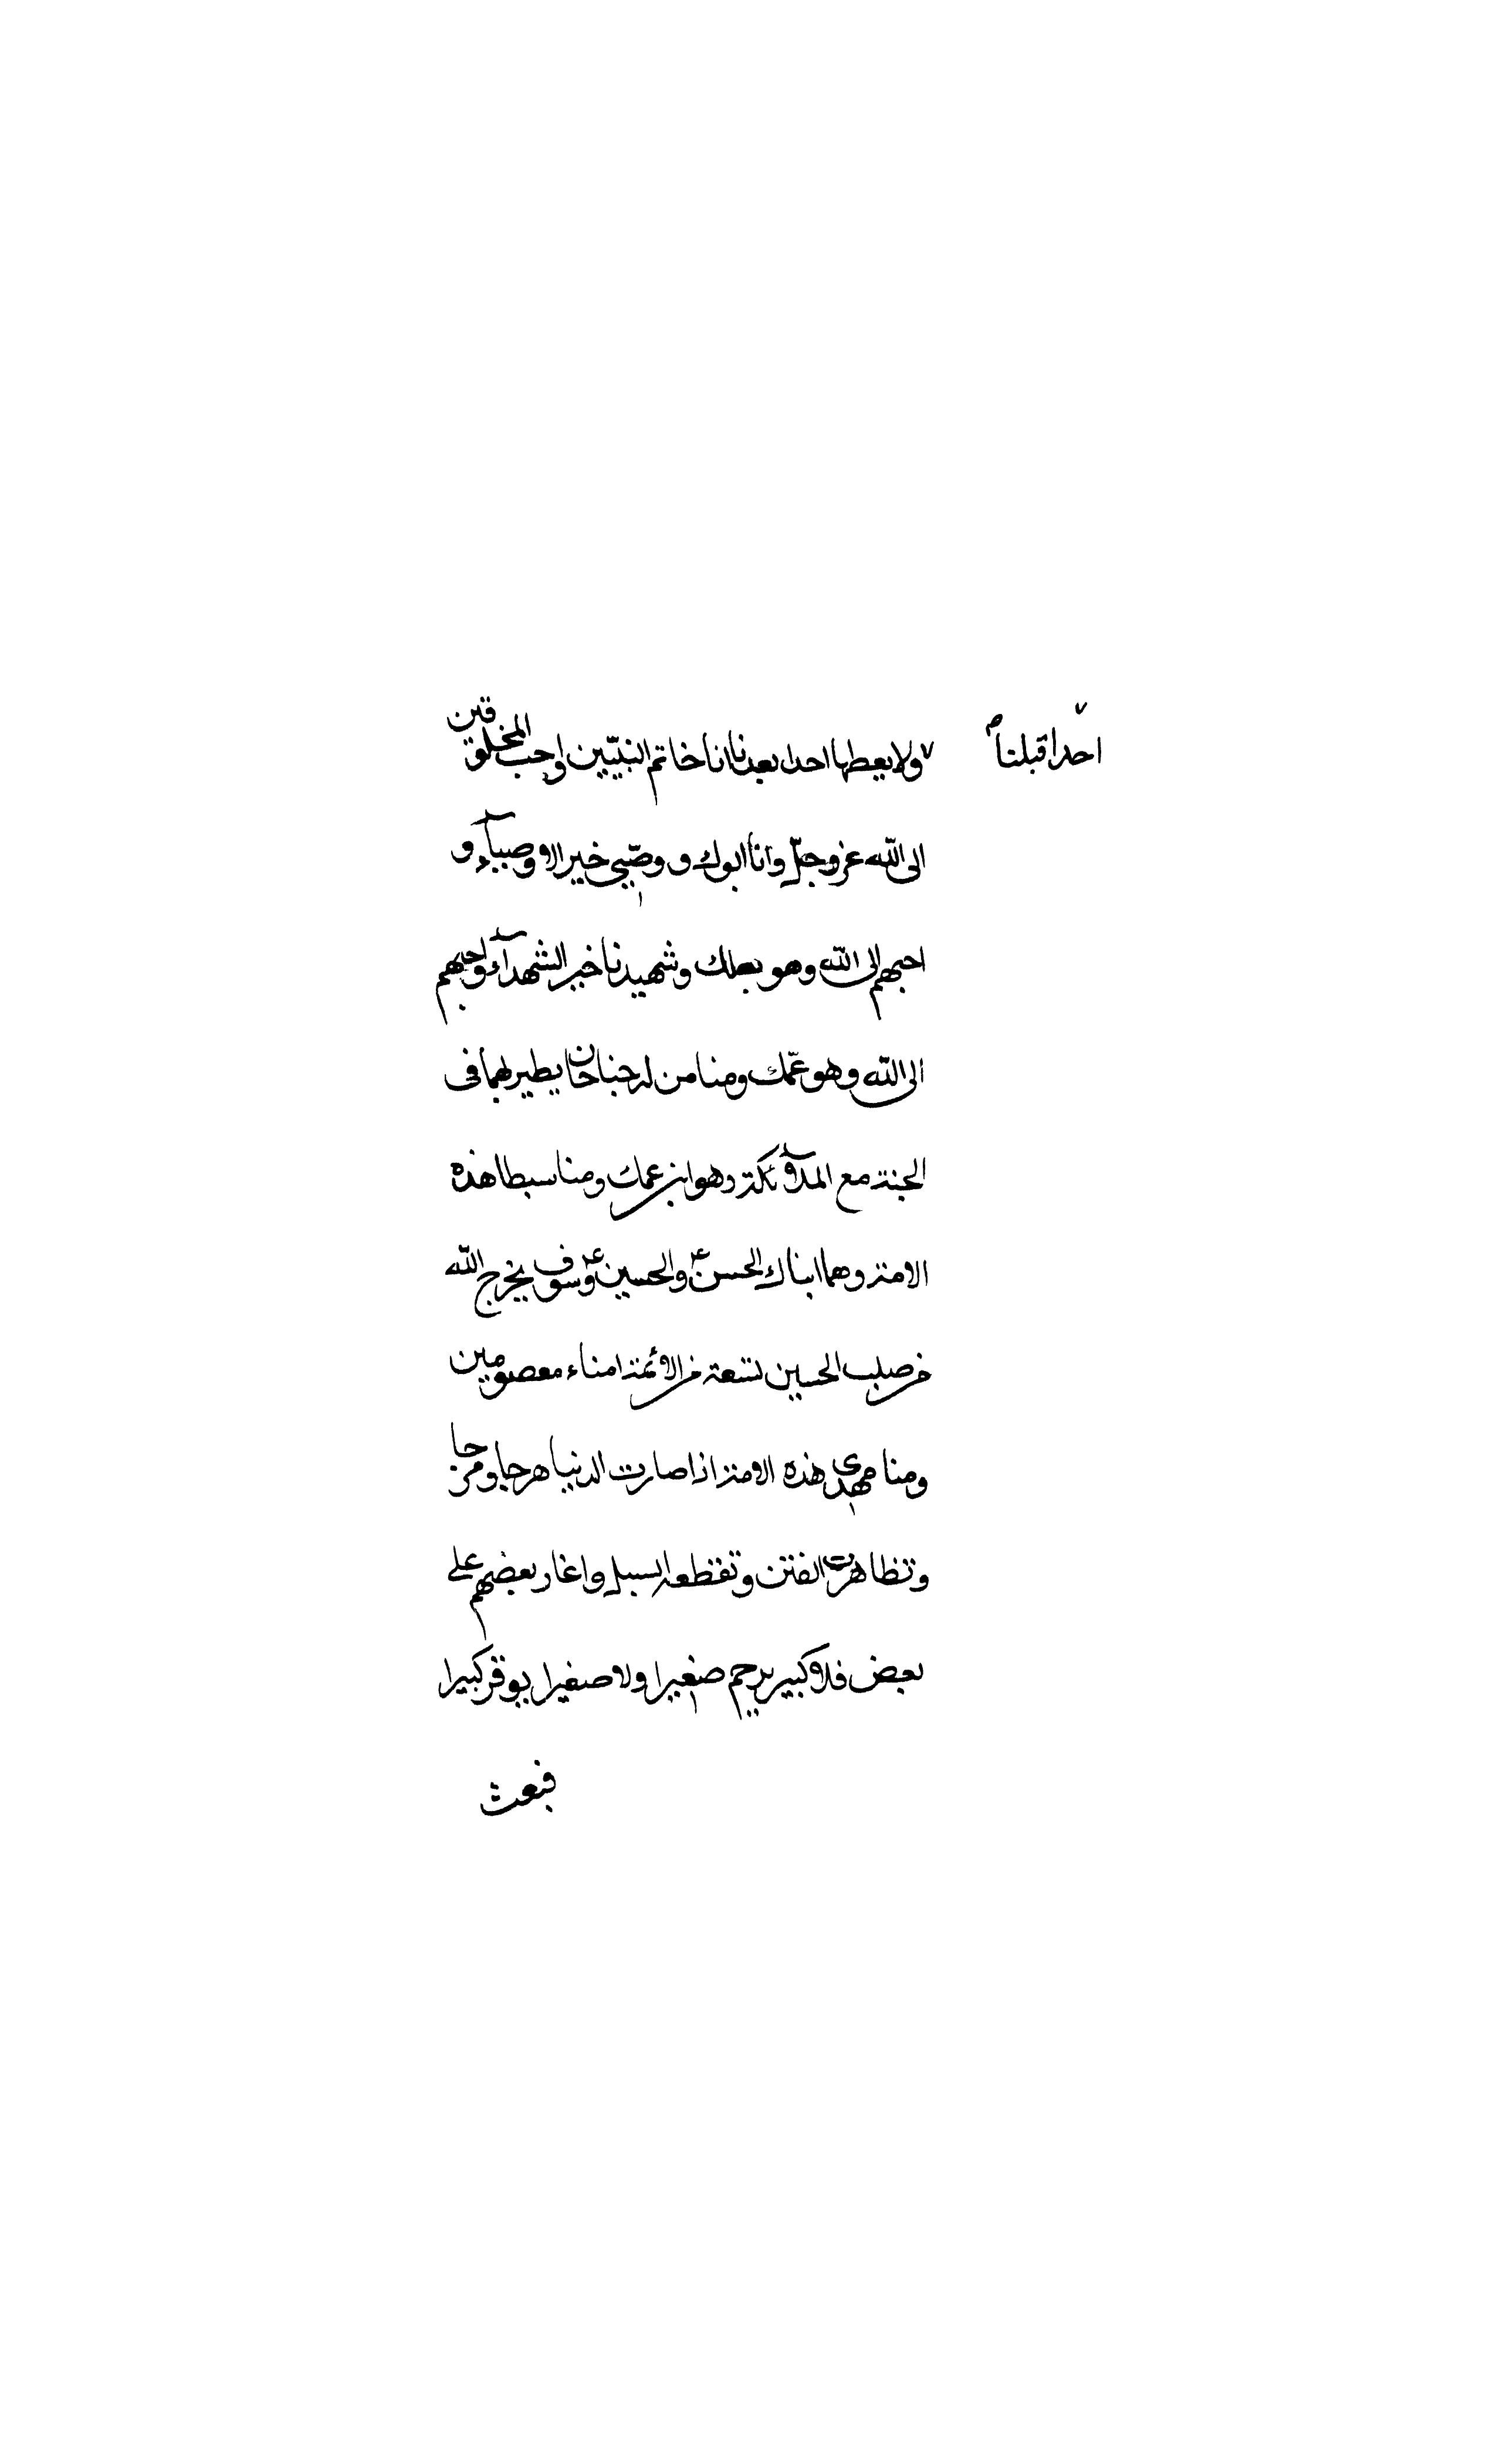 احدا قبلنا
ولا يعطها احدا بعدنا انا خاتم النبيّين واحب المخلوقين
الى الله عز وجلّ وانا ابوك و وصّيى خير الاوصيآء و
احبهم الى الله وهو بعلك وشهيدنا خير الشهدآء واحبهم
الى الله وهو عمّك ومنا من له جناحان يطير بهما فى
الجنة مع الملآئكة وهو ابن عمك ومنا سبطا هذه
الامة وهما ابناك الحسنؑ والحسينؑ وسوف يخرج الله
من صلب الحسين تسعة من الائمة امناء معصومين
ومنا مهدى هذه الامة اذا صارت الدنيا هرجا ومرجا
وتظاهرت الفتن وتقطعت السبل واغار بعضهم على
بعض فلا كبير يرحم صغيرا ولا صغيرا يوقر كبيرا
فبعث